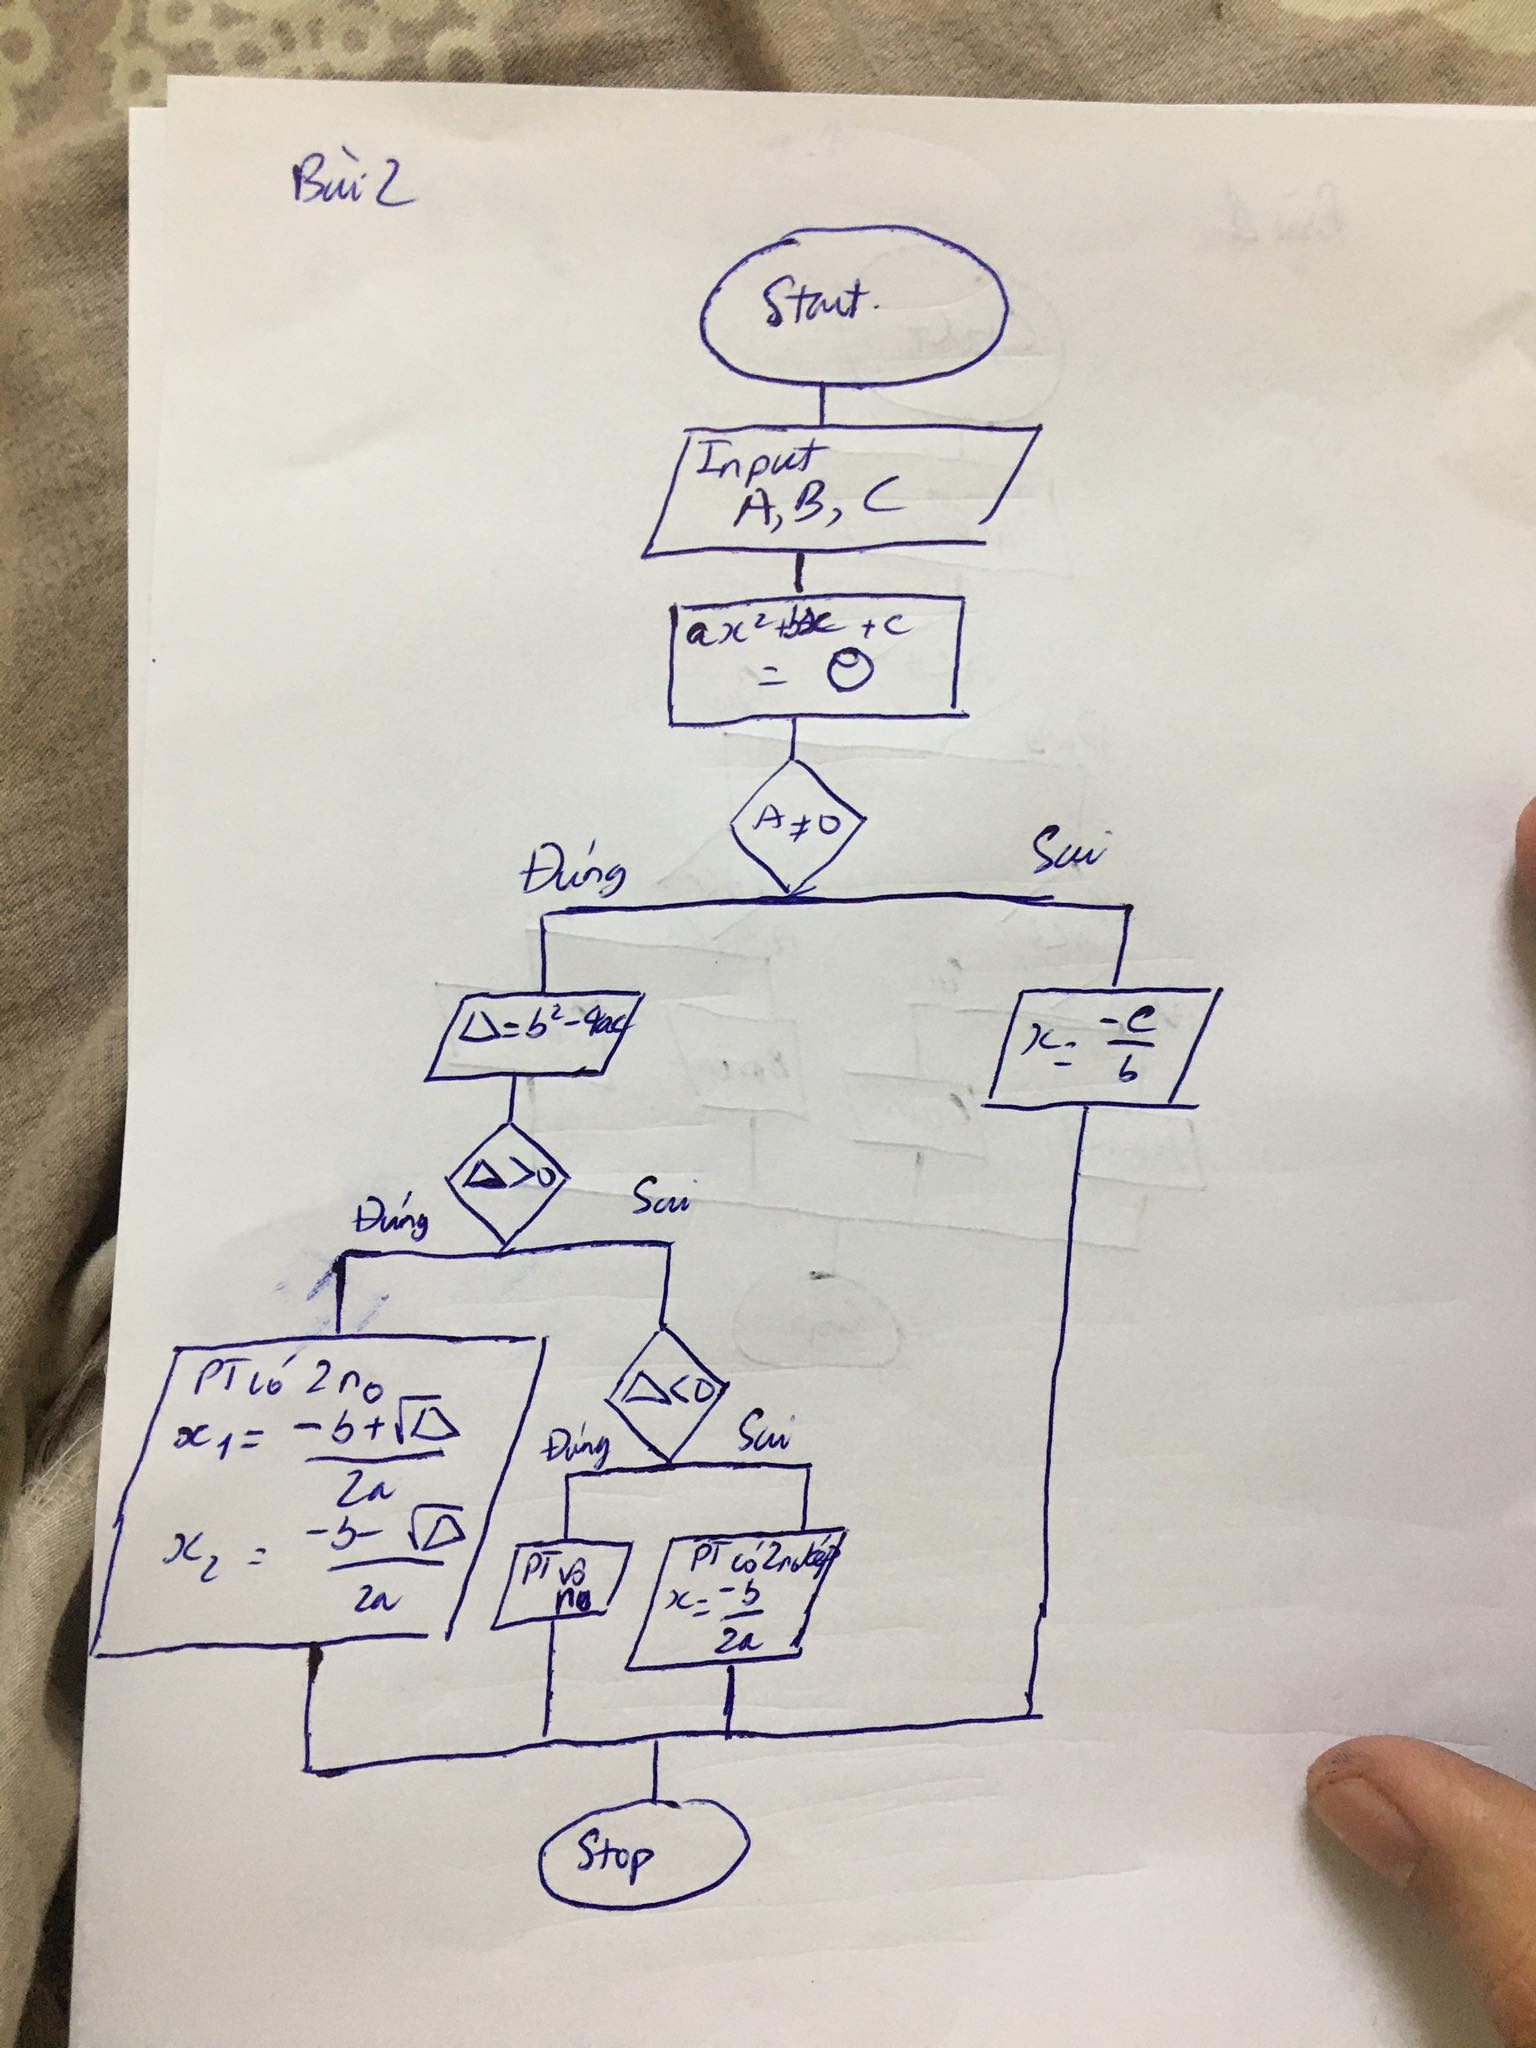 Bài 2
Start.
Input
A, B, C
ax² + bx + c
= 0
A ≠ 0
Đúng
Sai
Δ = b² - 4ac
x = -c/b
Δ > 0
Đúng
Sai
PT có 2 n₀
x₁ = -b + √Δ / 2a
x₂ = -b - √Δ / 2a
Δ < 0
Đúng
Sai
PT vô
n₀
PT có 2 n₀ kép
x = -b / 2a
Stop